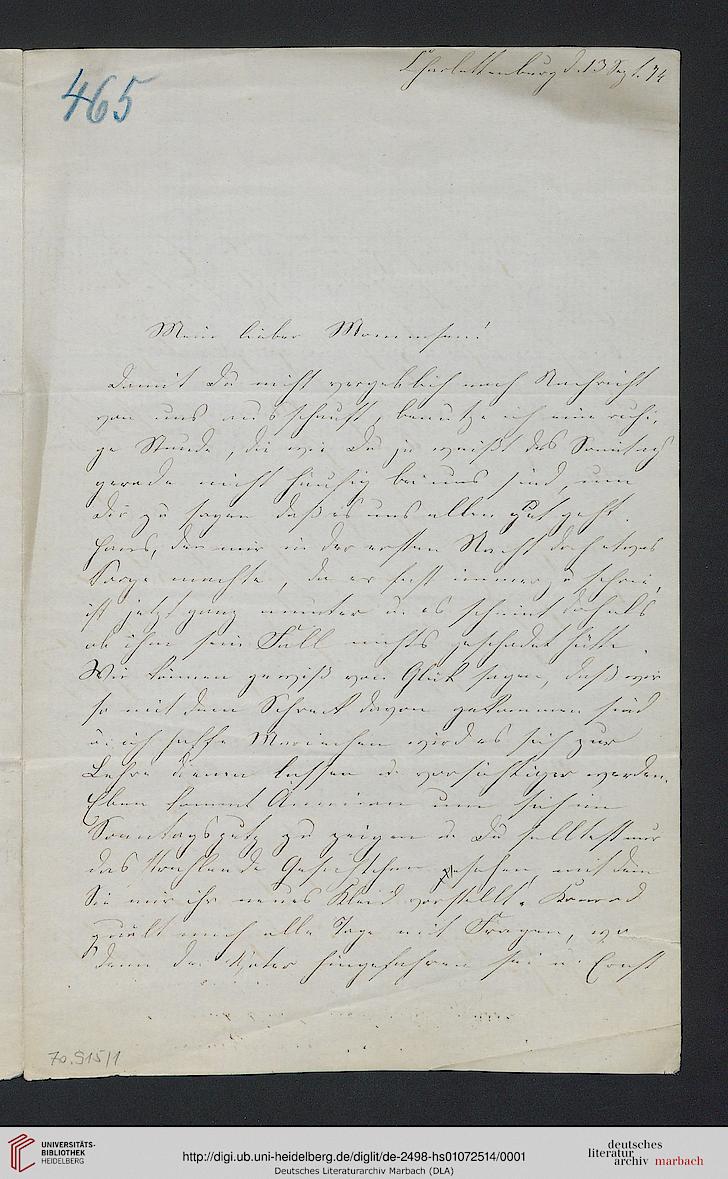 465
Charlottenburg d. 13 Sept. 74
Mein lieber Mommsen!
Damit Du nicht vergeblich nach Nachricht
von uns ausschaust, benutze ich eine ruhi-
ge Stunde, die wie Du ja weißt des Sonntags
gerade nicht häufig bei uns sind, um
Dir zu sagen daß es uns allen gut geht.
Hans, der mir in der ersten Nacht doch etwas
Sorge machte, da er fast immerzu schrie,
ist jetzt ganz munter u. es scheint doch als
ob ihm sein Fall nichts geschadet hätte.
Wir können gewiß von Glück sagen, daß wir
so mit dem Schreck davon gekommen sind
u. ich hoffe Mariechen wird es sich zur
Lehre dienen lassen u. vorsichtiger werden.
Eben kommt Ännchen um sich im
Sonntagsputz zu zeigen u. Du solltest nur
das strahlende Gesichtchen sehen, mit dem
Sie mir ihr neues Kleid vorstellt. Konrad
quält mich alle Tage mit Fragen, wo
denn der Vater hingefahren sei u. Ernst
70.915/1
UNIVERSITÄTS-
BIBLIOTHEK
HEIDELBERG
http://digi.ub.uni-heidelberg.de/diglit/de-2498-hs01072514/0001
Deutsches Literaturarchiv Marbach (DLA)
deutsches
literatur
archiv marbach